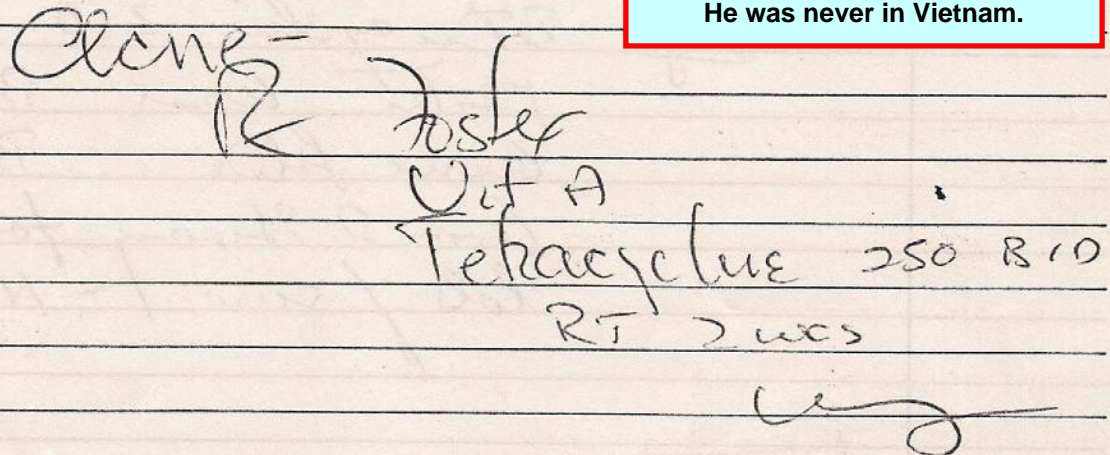 He was never in Vietnam.
Acne-
Rx Foster
Vit A
Tetracycline 250 BID
RT 2 wks